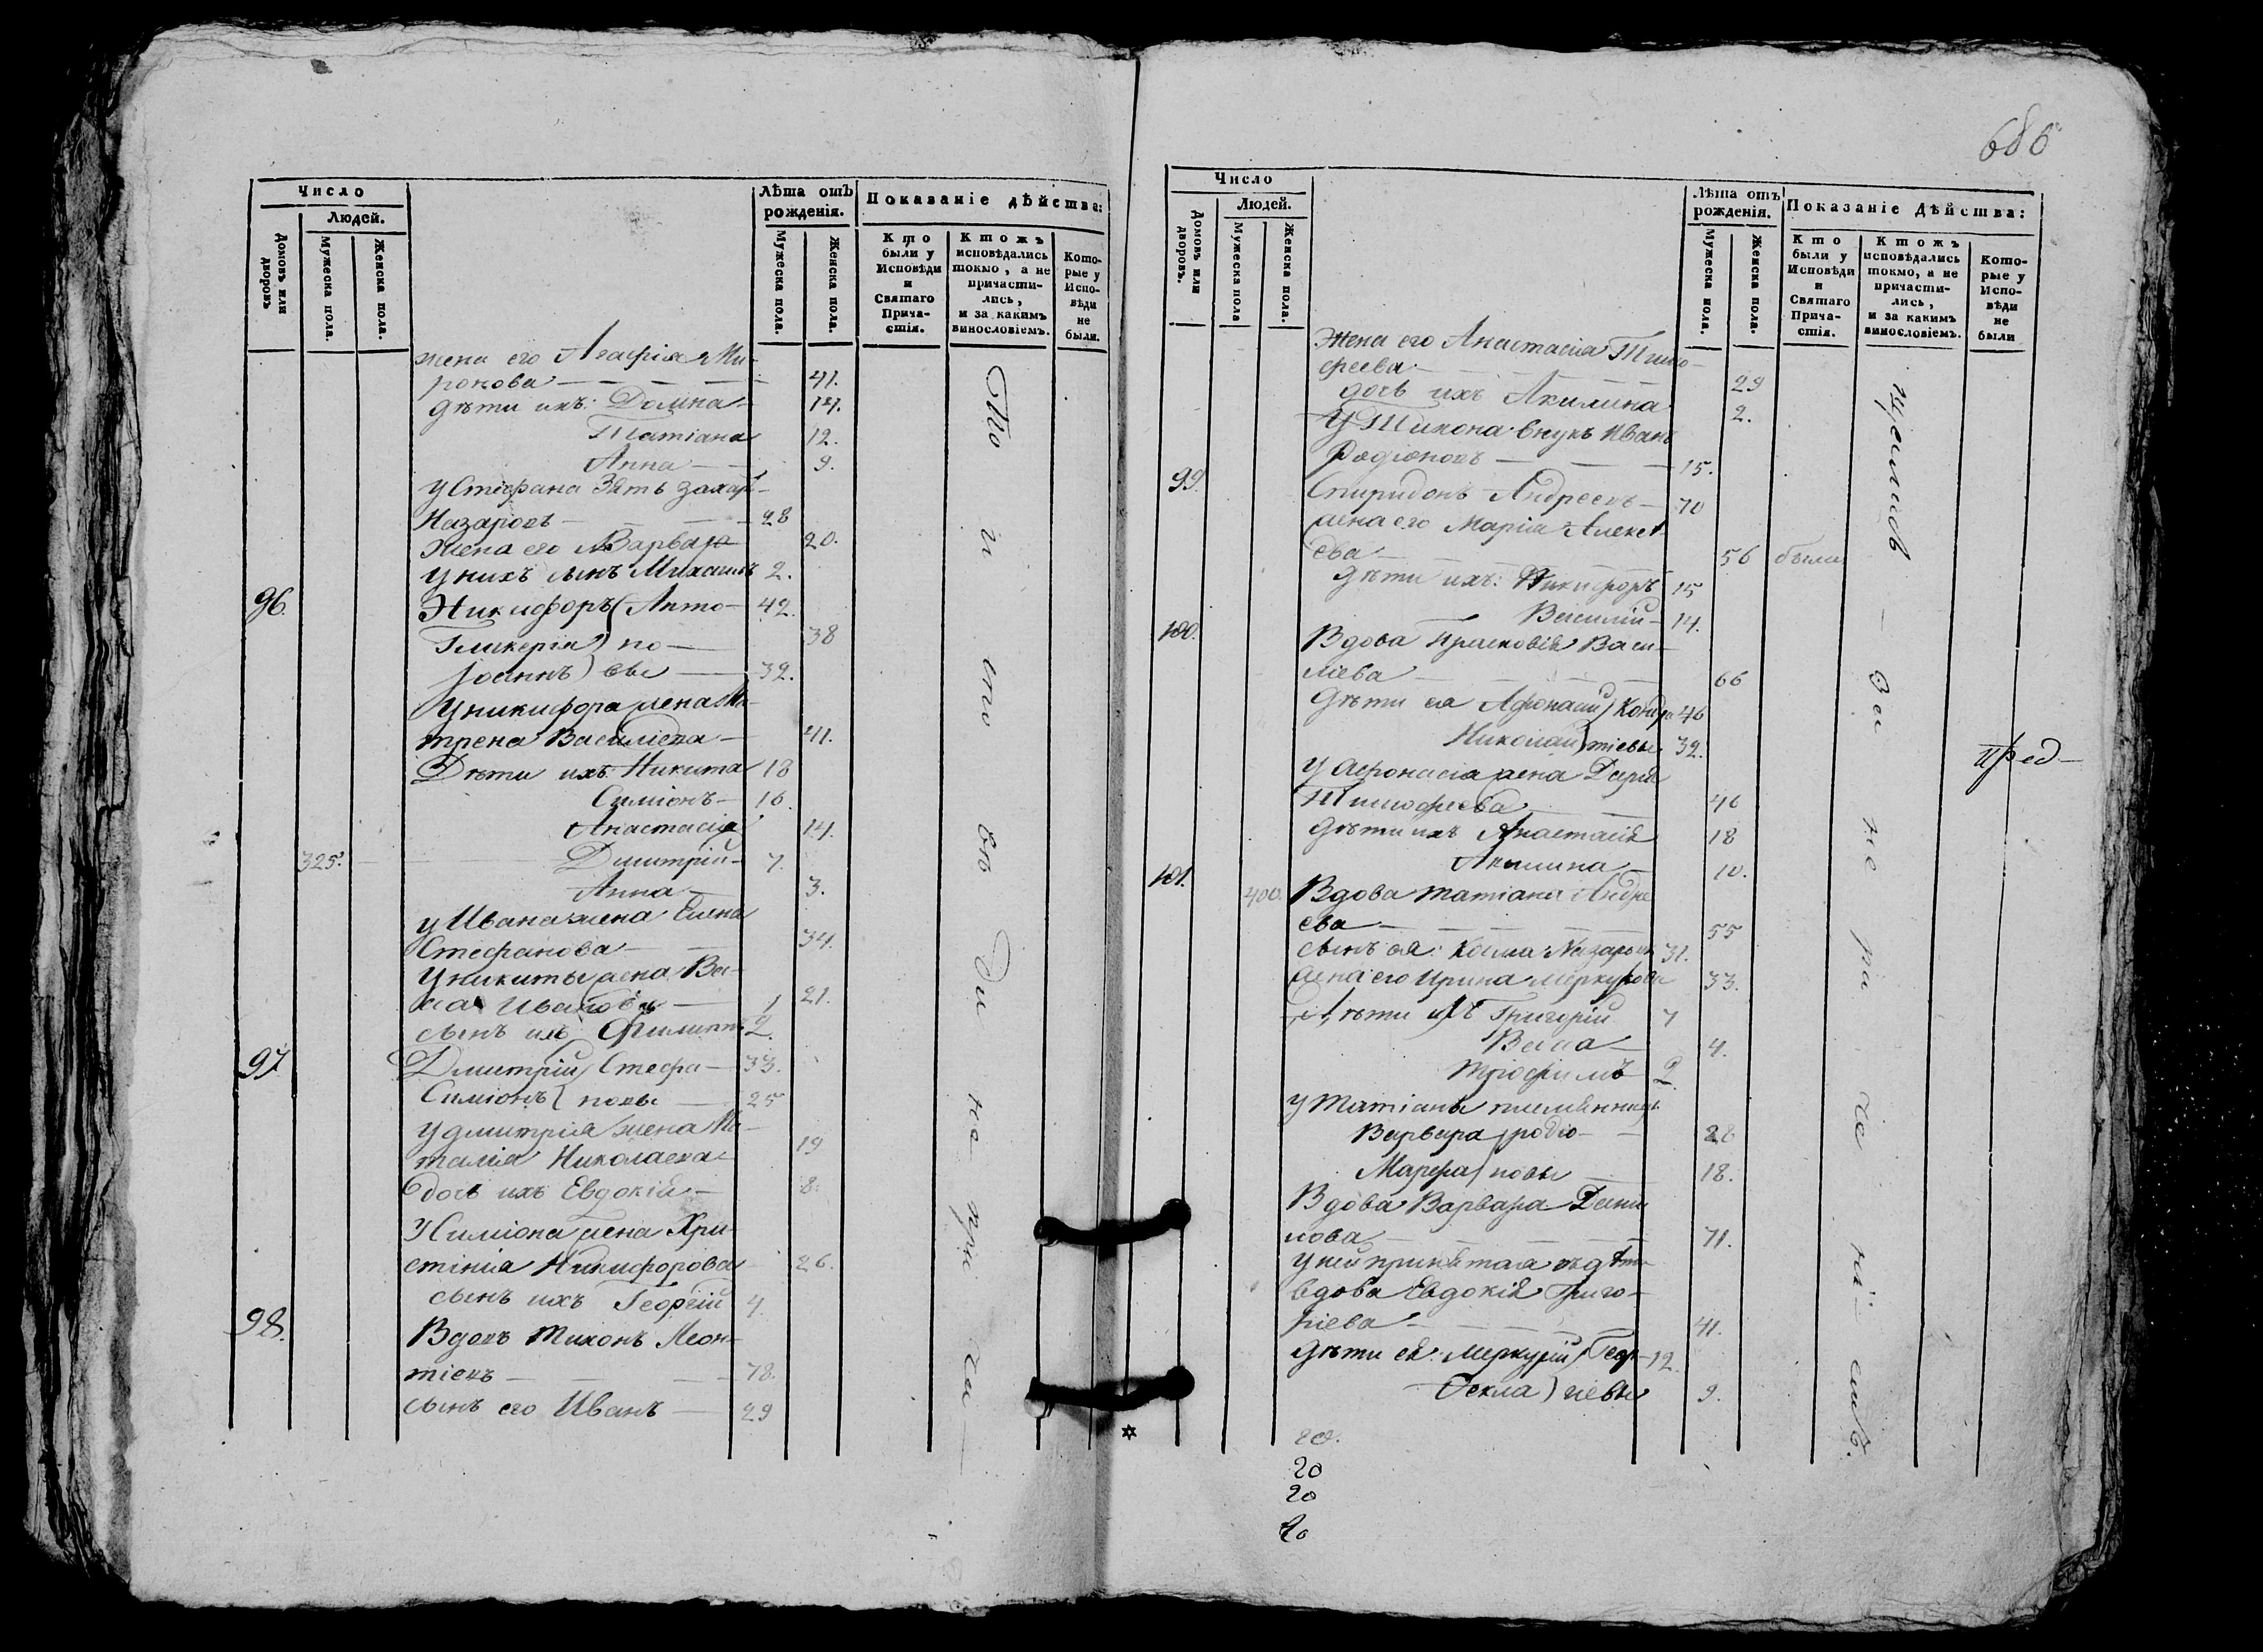 686
Число
Людей.
Домовъ или дворовъ
Мужеска пола.
Женска пола.
Лѣта отъ рожденія.
Мужеска пола.
Женска пола.
Показаніе дѣйства:
Кто были у Исповѣди и Святаго Прича-стія.
Ктожъ исповѣдались токмо, а не причасти-лись, и за какимъ винословіемъ.
Кото-рые у Испо-вѣди не были.
жена его Агафія Ми-
ронова — 41.
дѣти ихъ: Домна — 14.
Татіана 12.
Анна — 9.
у Стефана зять Захар
Назаровъ — 28
Жена его Варвара 20.
у нихъ сынъ Михаилъ 2.
96. Никифоръ ( Анто- 42.
Гликерія ) но — 38
Іоаннъ ) вы — 32.
У никифора жена Ма-
трена Василіева — 41.
Дѣти ихъ Никита 18
Симіонъ — 16.
Анастасія 14.
325. Дмитрій — 7.
Анна — 3.
у Ивана жена Елена
Стефанова — 34.
У никиты жена Ва-
сса Иванова — 21.
сынъ ихъ Филиппъ 2.
97 Дмитрій ) Стефа- 33.
Симіонъ ) новы — 25
у дмитрія жена На-
талія Николаева 19
дочь ихъ Евдокія — 8.
У Симіона жена Хри-
стінія Никифорова 26.
сынъ ихъ Георгій 4.
98. Вдовъ Тихонъ Леон-
тіевъ — 78.
сынъ его Иванъ — 29
То и сто въ Ди на при ча —
Число
Людей.
Домовъ или дворовъ.
Мужеска пола
Женска пола.
Лѣта отъ рожденія.
Мужеска пола.
Женска пола.
Показаніе Дѣйства:
Кто были у Исповѣди и Святаго Прича-стія.
Ктожъ исповѣдались токмо, а не причасти-лись, и за какимъ винословіемъ.
Кото-рые у Испо-вѣди не были
Жена его Анастасія Тимо-
феева — 29
дочь ихъ Акилина 2.
У Тихона внукъ Иванъ
Родіоновъ — 15.
99. Спиридонъ Андреевъ — 70
жена его Марія Алексѣ
ева — 56 была
дѣти ихъ: Никифоръ 15
Василій — 14.
100. Вдова Прасковія Васи-
ліева — 66
Дѣти ея Афонасій ) Кондра 46
Николай ) тіевы 32.
у Афонасія жена Дарія
Тимофеева 46
дѣти ихъ Анастасія 18
Акилина — 10.
101. 400. Вдова Татіана Андре
ева — 55
сынъ ея: Косма Назаровъ 31.
жена его Ирина Меркурова 33.
Дѣти ихъ Григорій 7
Васса — 4.
Трофимъ 2.
у Татіаны племянницы
Варвара ) родіо- 28
Марфа ) новы 18.
Вдова Варвара Дани
лова — 71.
у ней принятая въ дѣти
вдова Евдокія Григо-
ріева — 41.
дѣти ея: Меркурій ) Геор- 12.
Фекла ) гіевы 9.
за не ра че ні емъ.
пред —
20.
20
20
20